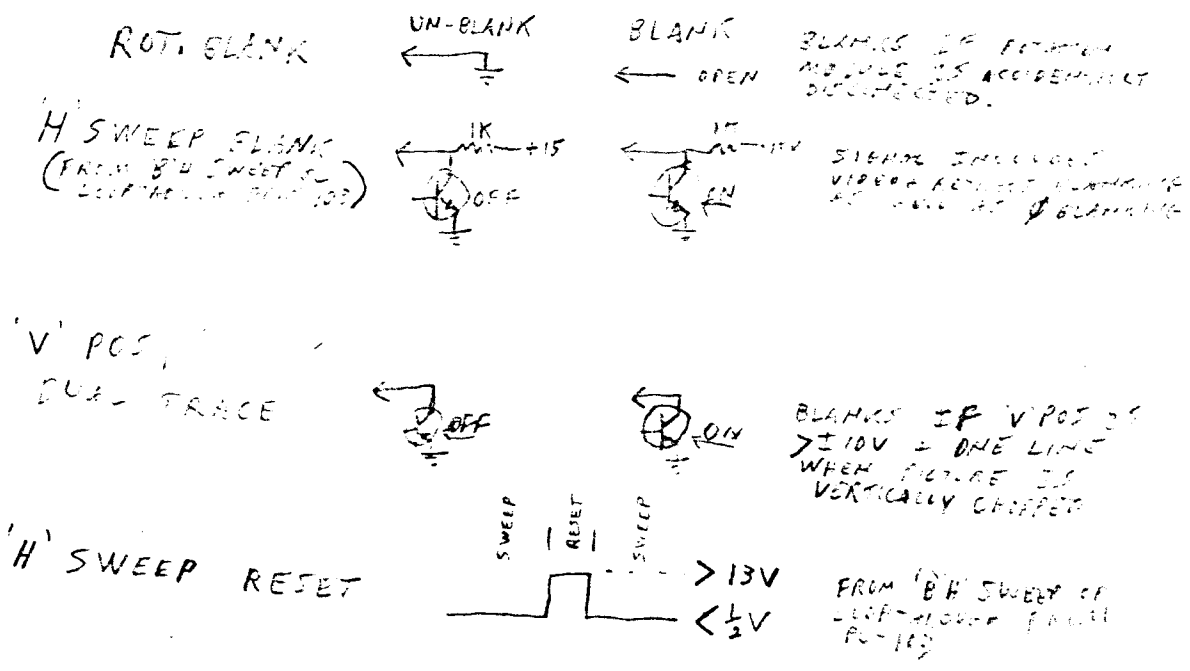 ROT. BLANK
UN-BLANK
BLANK
OPEN
BLANKS IF ROTATION
MODULE IS ACCIDENTALLY
DISCNECTED.
'H' SWEEP BLANK
(FROM 'B'H SWEEP
1K
+15
OFF
ON
SIGNAL INCLUDES
VIDEO + BLANKING
AS WELL AS BLANKING
'V' POS,
DUAL TRACE
OFF
ON
BLANKS IF 'V' POS IS
>±10V ONE LINE
WHEN PICTURE IS
VERTICALLY CHOPPED
'H' SWEEP RESET
SWEEP
RESET
SWEEP
>13V
<½V
FROM 'B'H' SWEEP OR